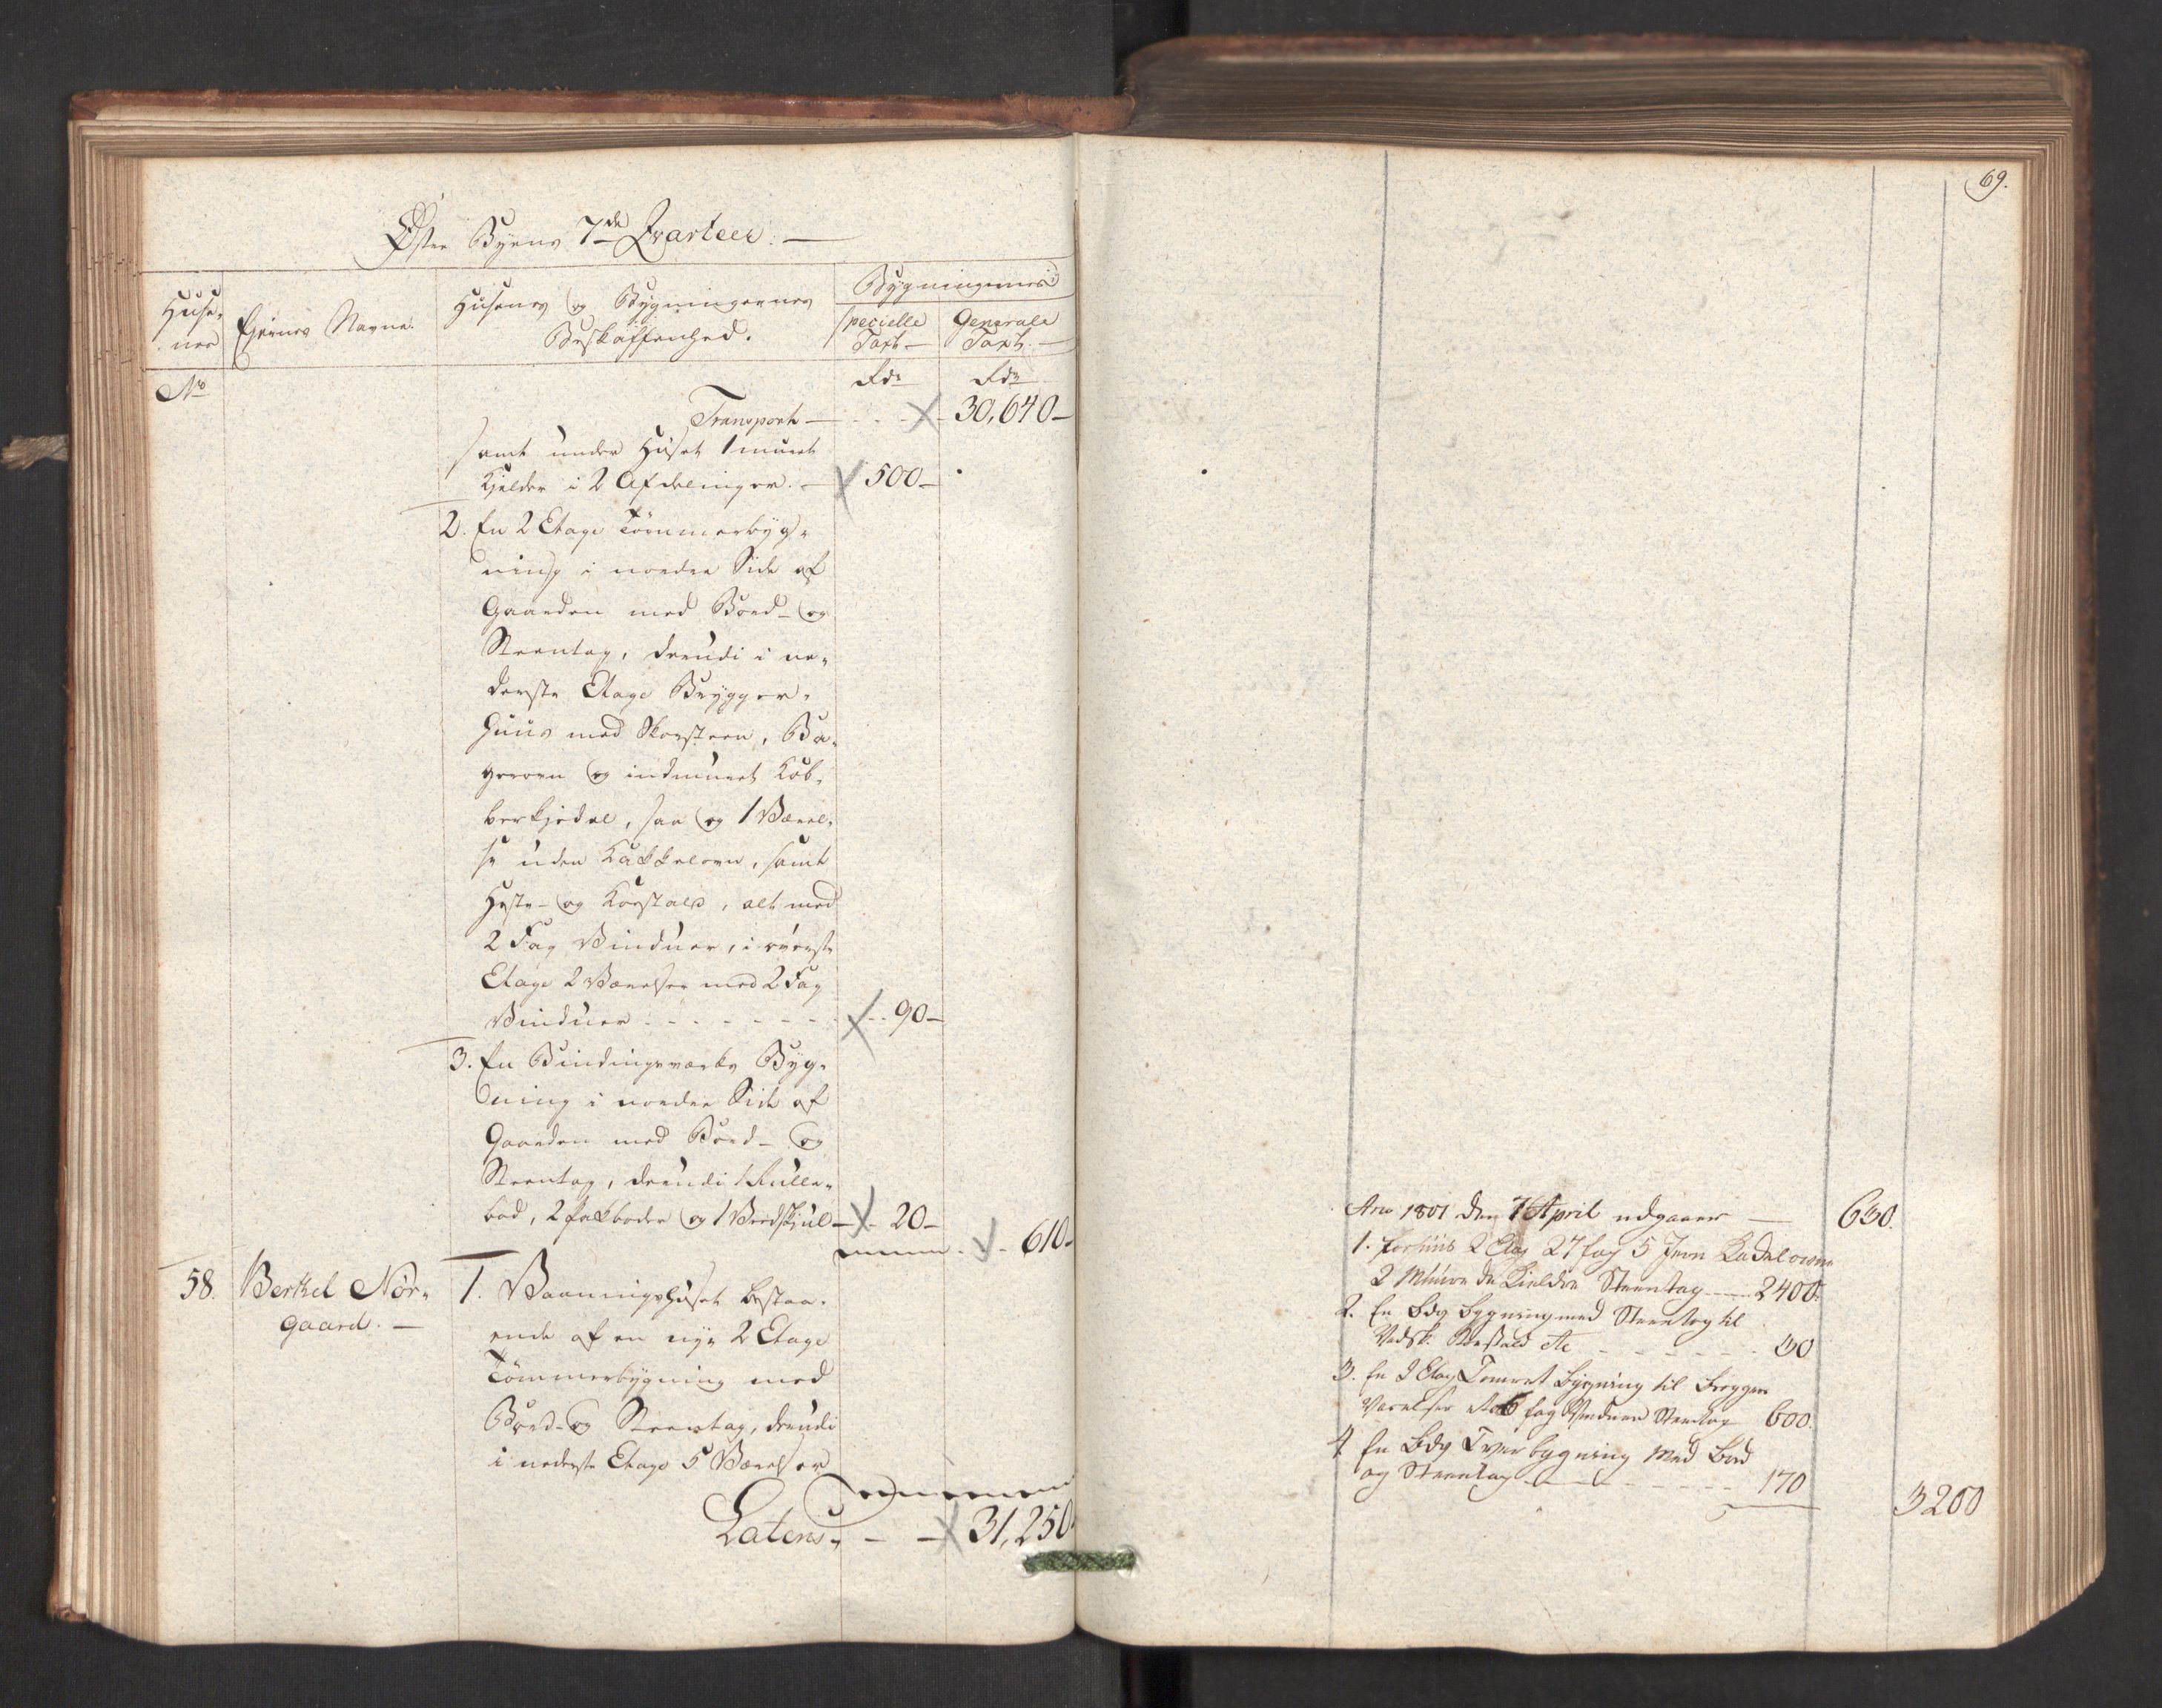 Øster Byens 7de Qvarteer. —
Huse-
nes
Ejernes Navne.
Husenes og Bygningernes
Beskaffenhed.
Bygningernes
specielle
Taxt —
Generale
Taxt. —
No
Rdr
Rdr
Transport — 30,640 —
samt under Huset 1 muret
Kjelder i 2 Afdelinger. — 500 —
2. En 2 Etage Tømmerbyg-
ning i nordre Side af
Gaarden med Bord- og
Steentag, derudi i ne-
derste Etage Brygger-
huus med Skorsteen, Ba-
gerovn og indmuret Kob-
berkjedel, saa og 1 Værel-
se uden Kakkelovn, samt
Heste- og Koestald, alt med
2 Fag Vinduer, i øverste
Etage 2 Værelser med 2 Fag
Vinduer - - - - - 90 —
3. En Bindingsværks Byg-
ning i nordre Side af
Gaarden med Bord- og
Steentag, derudi 1 Rulle-
bod, 2 Pakboder og 1 Vedskjul — 20 —
610 -
58. Berthel Nør-
gaard. —
1. Vaaningshuset bestaa-
ende af en nye 2 Etage
Tømmerbygning med
Bord- og Steentag, derudi
i nederste Etage 5 Værelser
Lateris - - 31,250
69.
Ano 1801 den 7 April udgaaer — 630.
1. Forhuus 2 Etag 27 fag 5 Jern Kackelovne
2 Murede Kieldre Steentag — 2400.
2. En Bdg bygning med Steentag til
Vedsk. Koestald etc - - - - - 30
3. En 2 Etag Tømret Bygning til Brygger
Værelser 6 fag Vinduer Steentag 600.
4 En Bdg Tverbygning med Bord
og Steentag - - - - 170
3200